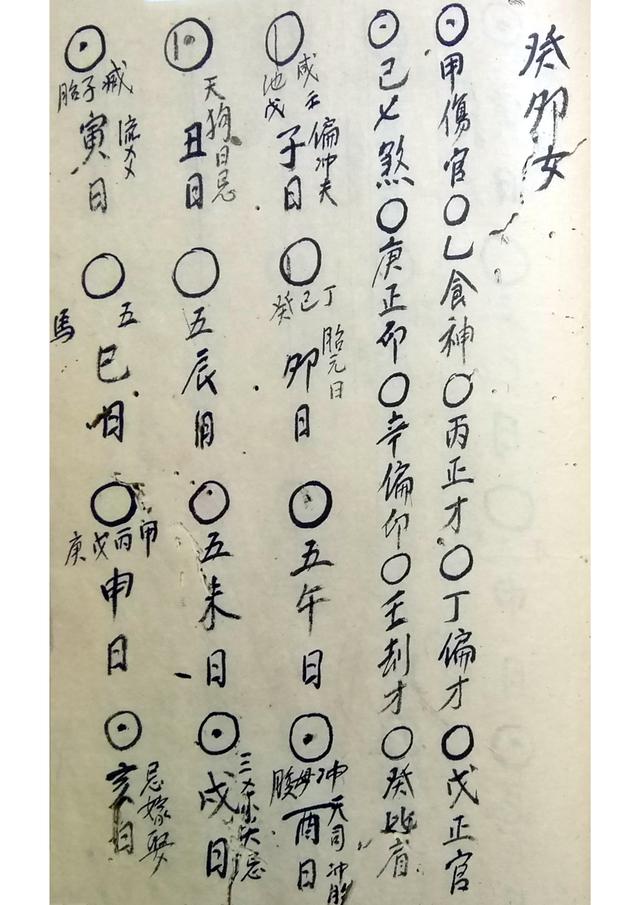 癸卯女
⊙甲傷官〇乙食神〇丙正才〇丁偏才〇戊正官
⊙己七煞〇庚正印〇辛偏印〇壬刦才〇癸比肩
子日
偏冲夫
卯日
丁己癸
胎元日
五午日
酉日
冲
天司
丑日
天狗日忌
五辰日
五未日
戌日
三杀大忌
寅日
胎子
五巳日
馬
申日
甲丙戊庚
亥日
忌嫁娶